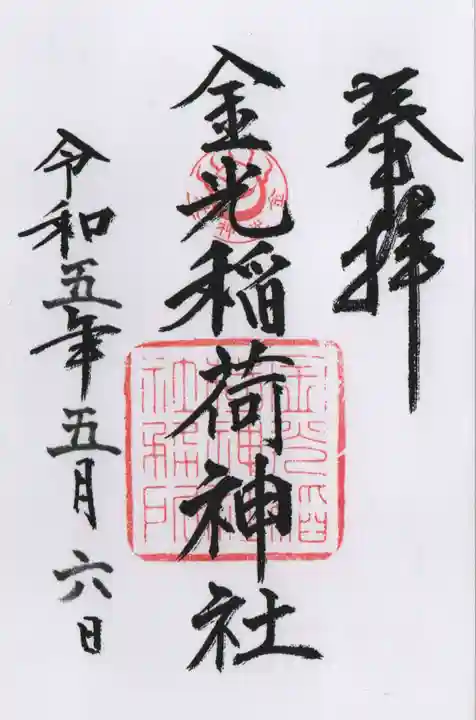 奉拝
金光稲荷神社
令和五年五月六日